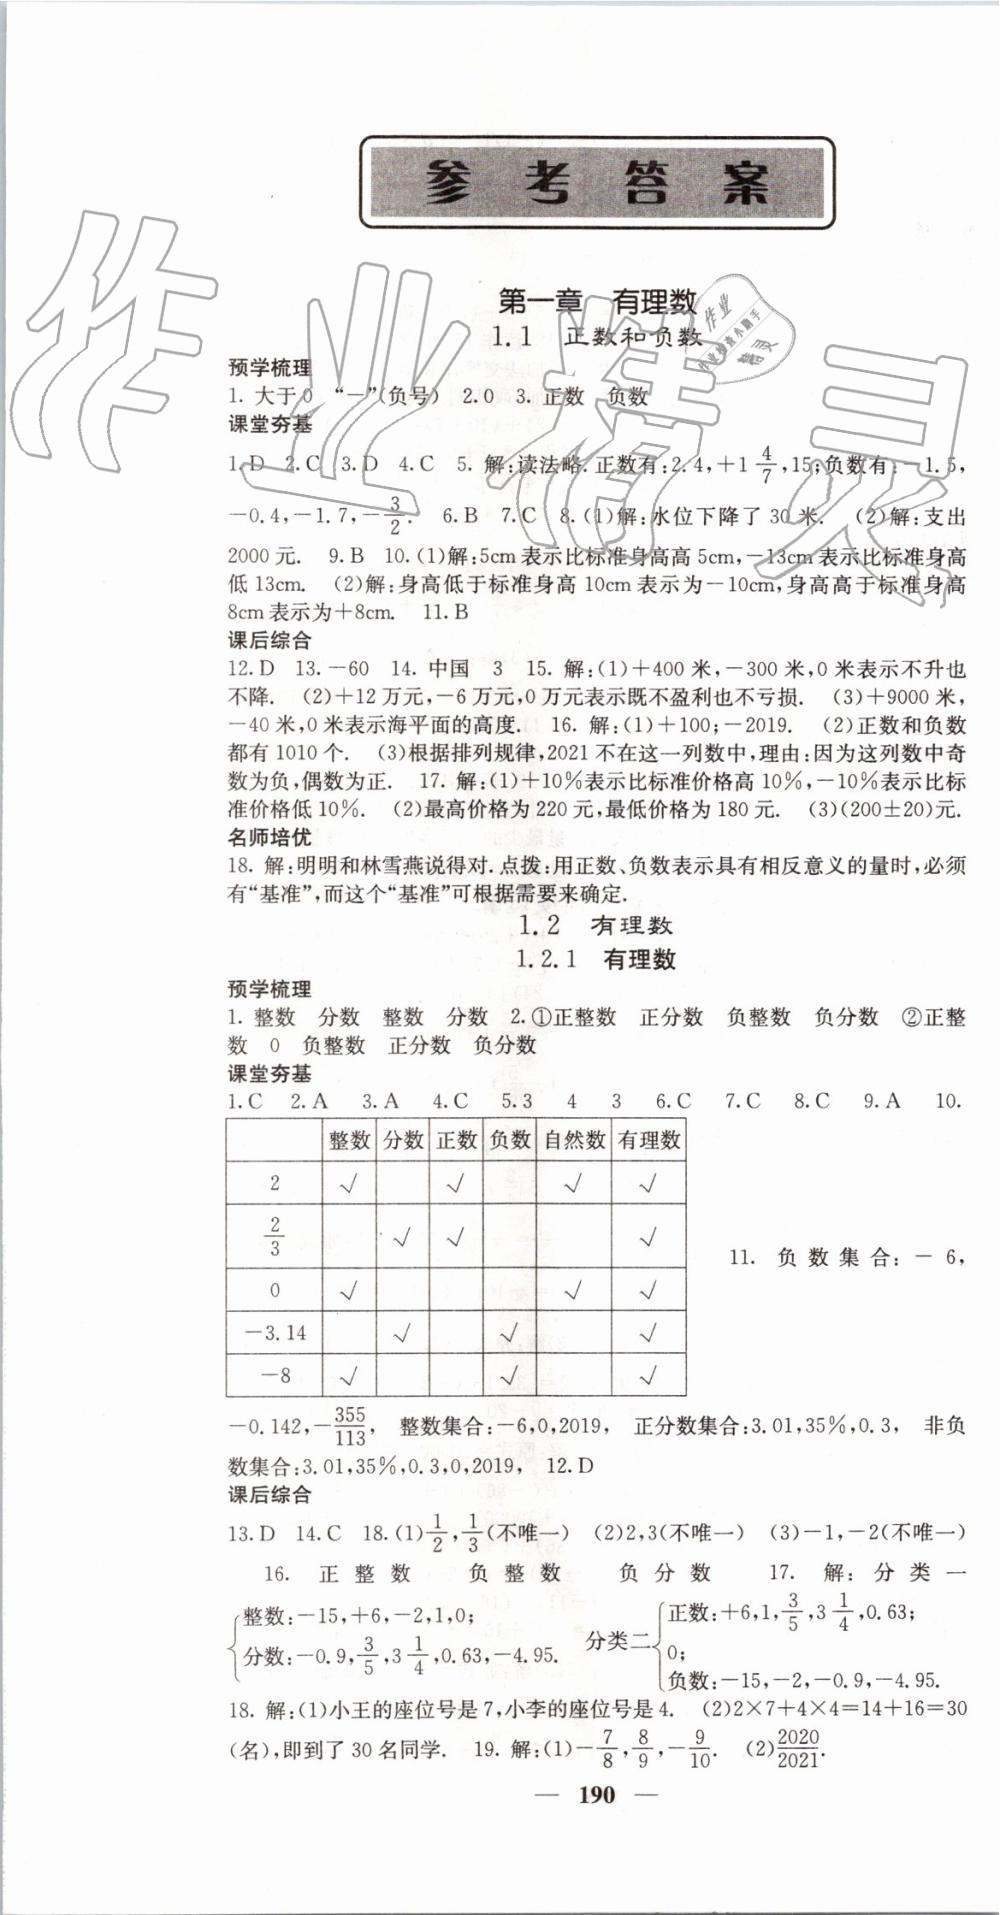 参考答案
第一章 有理数
1.1 正数和负数
预学梳理
1. 大于0 “－”(负号) 2.0 3. 正数 负数
课堂夯基
1.D 2.C 3.D 4.C 5. 解:读法略. 正数有:2.4,+1 4/7,15;负数有:－1.5,
－0.4,－1.7,－3/2. 6.B 7.C 8.(1)解:水位下降了 30 米. (2)解:支出
2000 元. 9.B 10.(1)解:5cm 表示比标准身高高 5cm,－13cm 表示比标准身高
低 13cm. (2)解:身高低于标准身高 10cm 表示为－10cm,身高高于标准身高
8cm 表示为＋8cm. 11.B
课后综合
12.D 13.－60 14. 中国 3 15. 解:(1)＋400 米,－300 米,0 米表示不升也
不降. (2)＋12 万元,－6 万元,0 万元表示既不盈利也不亏损. (3)＋9000 米,
－40 米,0 米表示海平面的高度. 16. 解:(1)＋100;－2019. (2)正数和负数
都有 1010 个. (3)根据排列规律,2021 不在这一列数中,理由:因为这列数中奇
数为负,偶数为正. 17. 解:(1)＋10%表示比标准价格高 10%,－10%表示比标
准价格低 10%. (2)最高价格为 220 元,最低价格为 180 元. (3)(200±20)元.
名师培优
18. 解:明明和林雪燕说得对. 点拨:用正数、负数表示具有相反意义的量时,必须
有“基准”,而这个“基准”可根据需要来确定.
1.2 有理数
1.2.1 有理数
预学梳理
1. 整数 分数 整数 分数 2.①正整数 正分数 负整数 负分数 ②正整
数 0 负整数 正分数 负分数
课堂夯基
1.C 2.A 3.A 4.C 5.3 4 3 6.C 7.C 8.C 9.A 10.
整数 分数 正数 负数 自然数 有理数
2 √ √ √ √
2/3 √ √ √
0 √ √ √
－3.14 √ √ √
－8 √ √ √
11. 负数集合:－6,
－0.142,－355/113, 整数集合:－6,0,2019, 正分数集合:3.01,35%,0.3, 非负
数集合:3.01,35%,0.3,0,2019, 12.D
课后综合
13.D 14.C 18.(1)1/2,1/3(不唯一) (2)2,3(不唯一) (3)－1,－2(不唯一)
16. 正整数 负整数 负分数 17. 解:分类一
整数:－15,＋6,－2,1,0;
分数:－0.9,3/5,3 1/4,0.63,－4.95.
分类二
正数:＋6,1,3/5,3 1/4,0.63;
0;
负数:－15,－2,－0.9,－4.95.
18. 解:(1)小王的座位号是 7,小李的座位号是 4. (2)2×7＋4×4＝14＋16＝30
(名),即到了 30 名同学. 19. 解:(1)－7/8,8/9,－9/10. (2)2020/2021.
— 190 —
作业精灵
作业
作业检查小助手
精灵